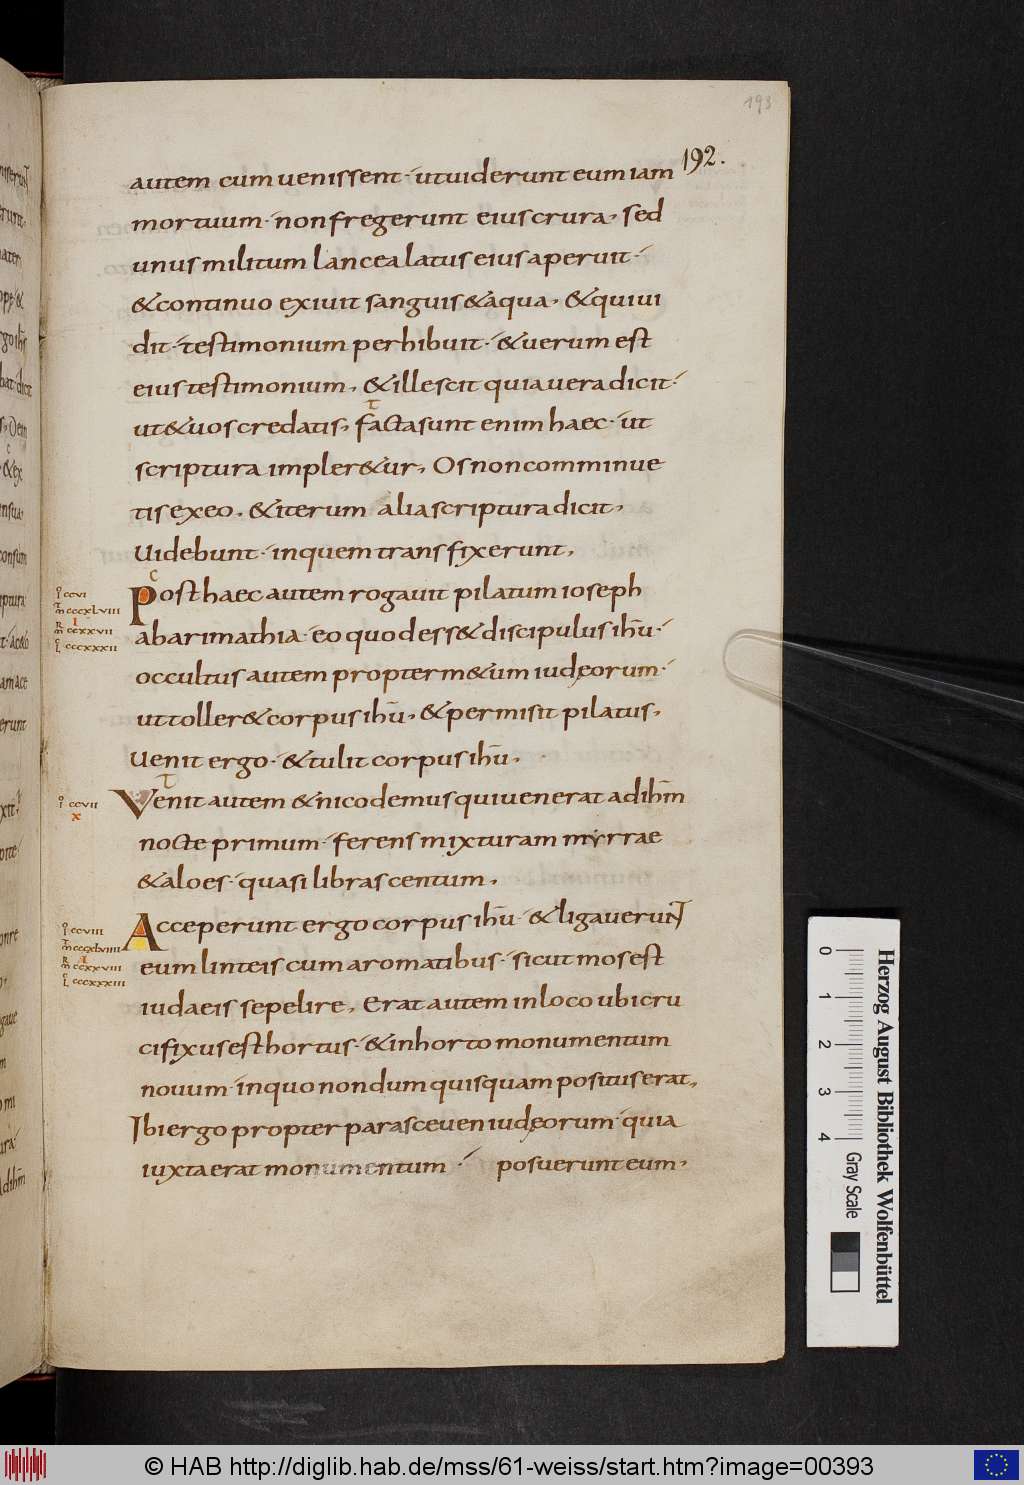 193
192.
autem cum venissent· ut viderunt eum iam
mortuum· non fregerunt eius crura, sed
unus militum lancea latus eius aperuit·
& continuo exivit sanguis & aqua, & qui vi
dit· testimonium perhibuit· & verum est
eius testimonium, & ille scit quia vera dicit·
ut & vos credatis, facta sunt enim haec· ut
scriptura impler&ur, Os non comminue
tis ex eo, & iterum alia scriptura dicit,
Videbunt· in quem transfixerunt,
Post haec autem rogavit pilatum ioseph
ab arimathia· eo quod ess& discipulus ihū·
occultus autem propter m&um iudęorum·
ut toller& corpus ihū, & permisit pilatus,
Venit ergo· & tulit corpus ihū,
Venit autem & nicodemus qui venerat ad ihm̄
nocte primum· ferens mixturam myrrae
& aloes· quasi libras centum,
Acceperunt ergo corpus ihū· & ligaverunt
eum linteis cum aromatibus· sicut mos est
iudaeis sepelire, Erat autem in loco ubi cru
cifixus est hortus· & in horto monumentum
novum· in quo nondum quisquam positus erat,
Ibi ergo propter parasceven iudęorum· quia
iuxta erat monumentum· posuerunt eum,
CCVI
CCCXLVIII
I
CCXXVII
CCCXXXII
CCVII
X
CCVIII
CCCXLVIIII
I
CCXXVIII
CCCXXXIII
Herzog August Bibliothek Wolfenbüttel
0 1 2 3 4
Gray Scale
© HAB http://diglib.hab.de/mss/61-weiss/start.htm?image=00393